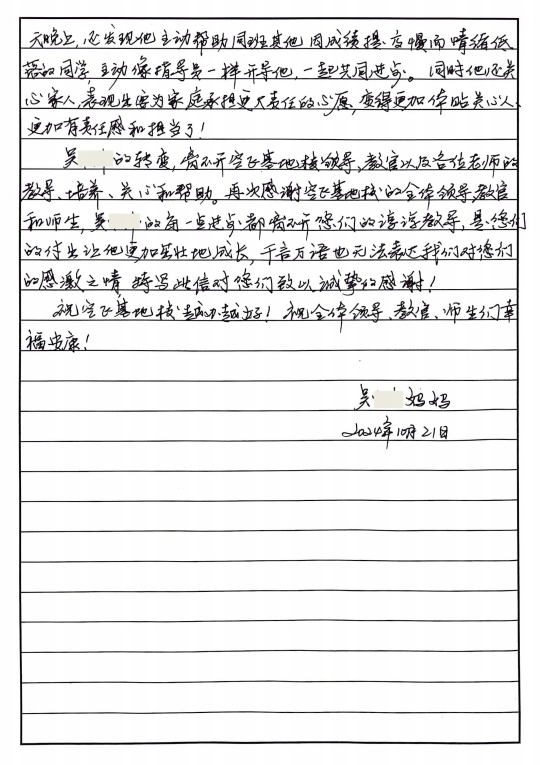 天晚上，还发现他主动帮助同班其他因成绩提高慢而情绪低
落的同学，主动像指导员一样开导他，一起共同进步。同时他还关
心家人，表现出要为家庭承担更大责任的心愿，变得更加体贴关心人、
更加有责任感和担当了！
吴 的转变，离不开空飞基地校领导、教官以及各位老师的
教导、培养、关心和帮助。再次感谢空飞基地校的全体领导、教官
和师生，吴 的每一点进步都离不开您们的谆谆教导，是您们
的付出让他更加茁壮地成长，千言万语也无法表达我们对您们
的感激之情，特写此信对您们致以诚挚的感谢！
祝空飞基地校越办越好！祝全体领导、教官、师生们幸
福安康！
吴 妈妈
2024年10月21日